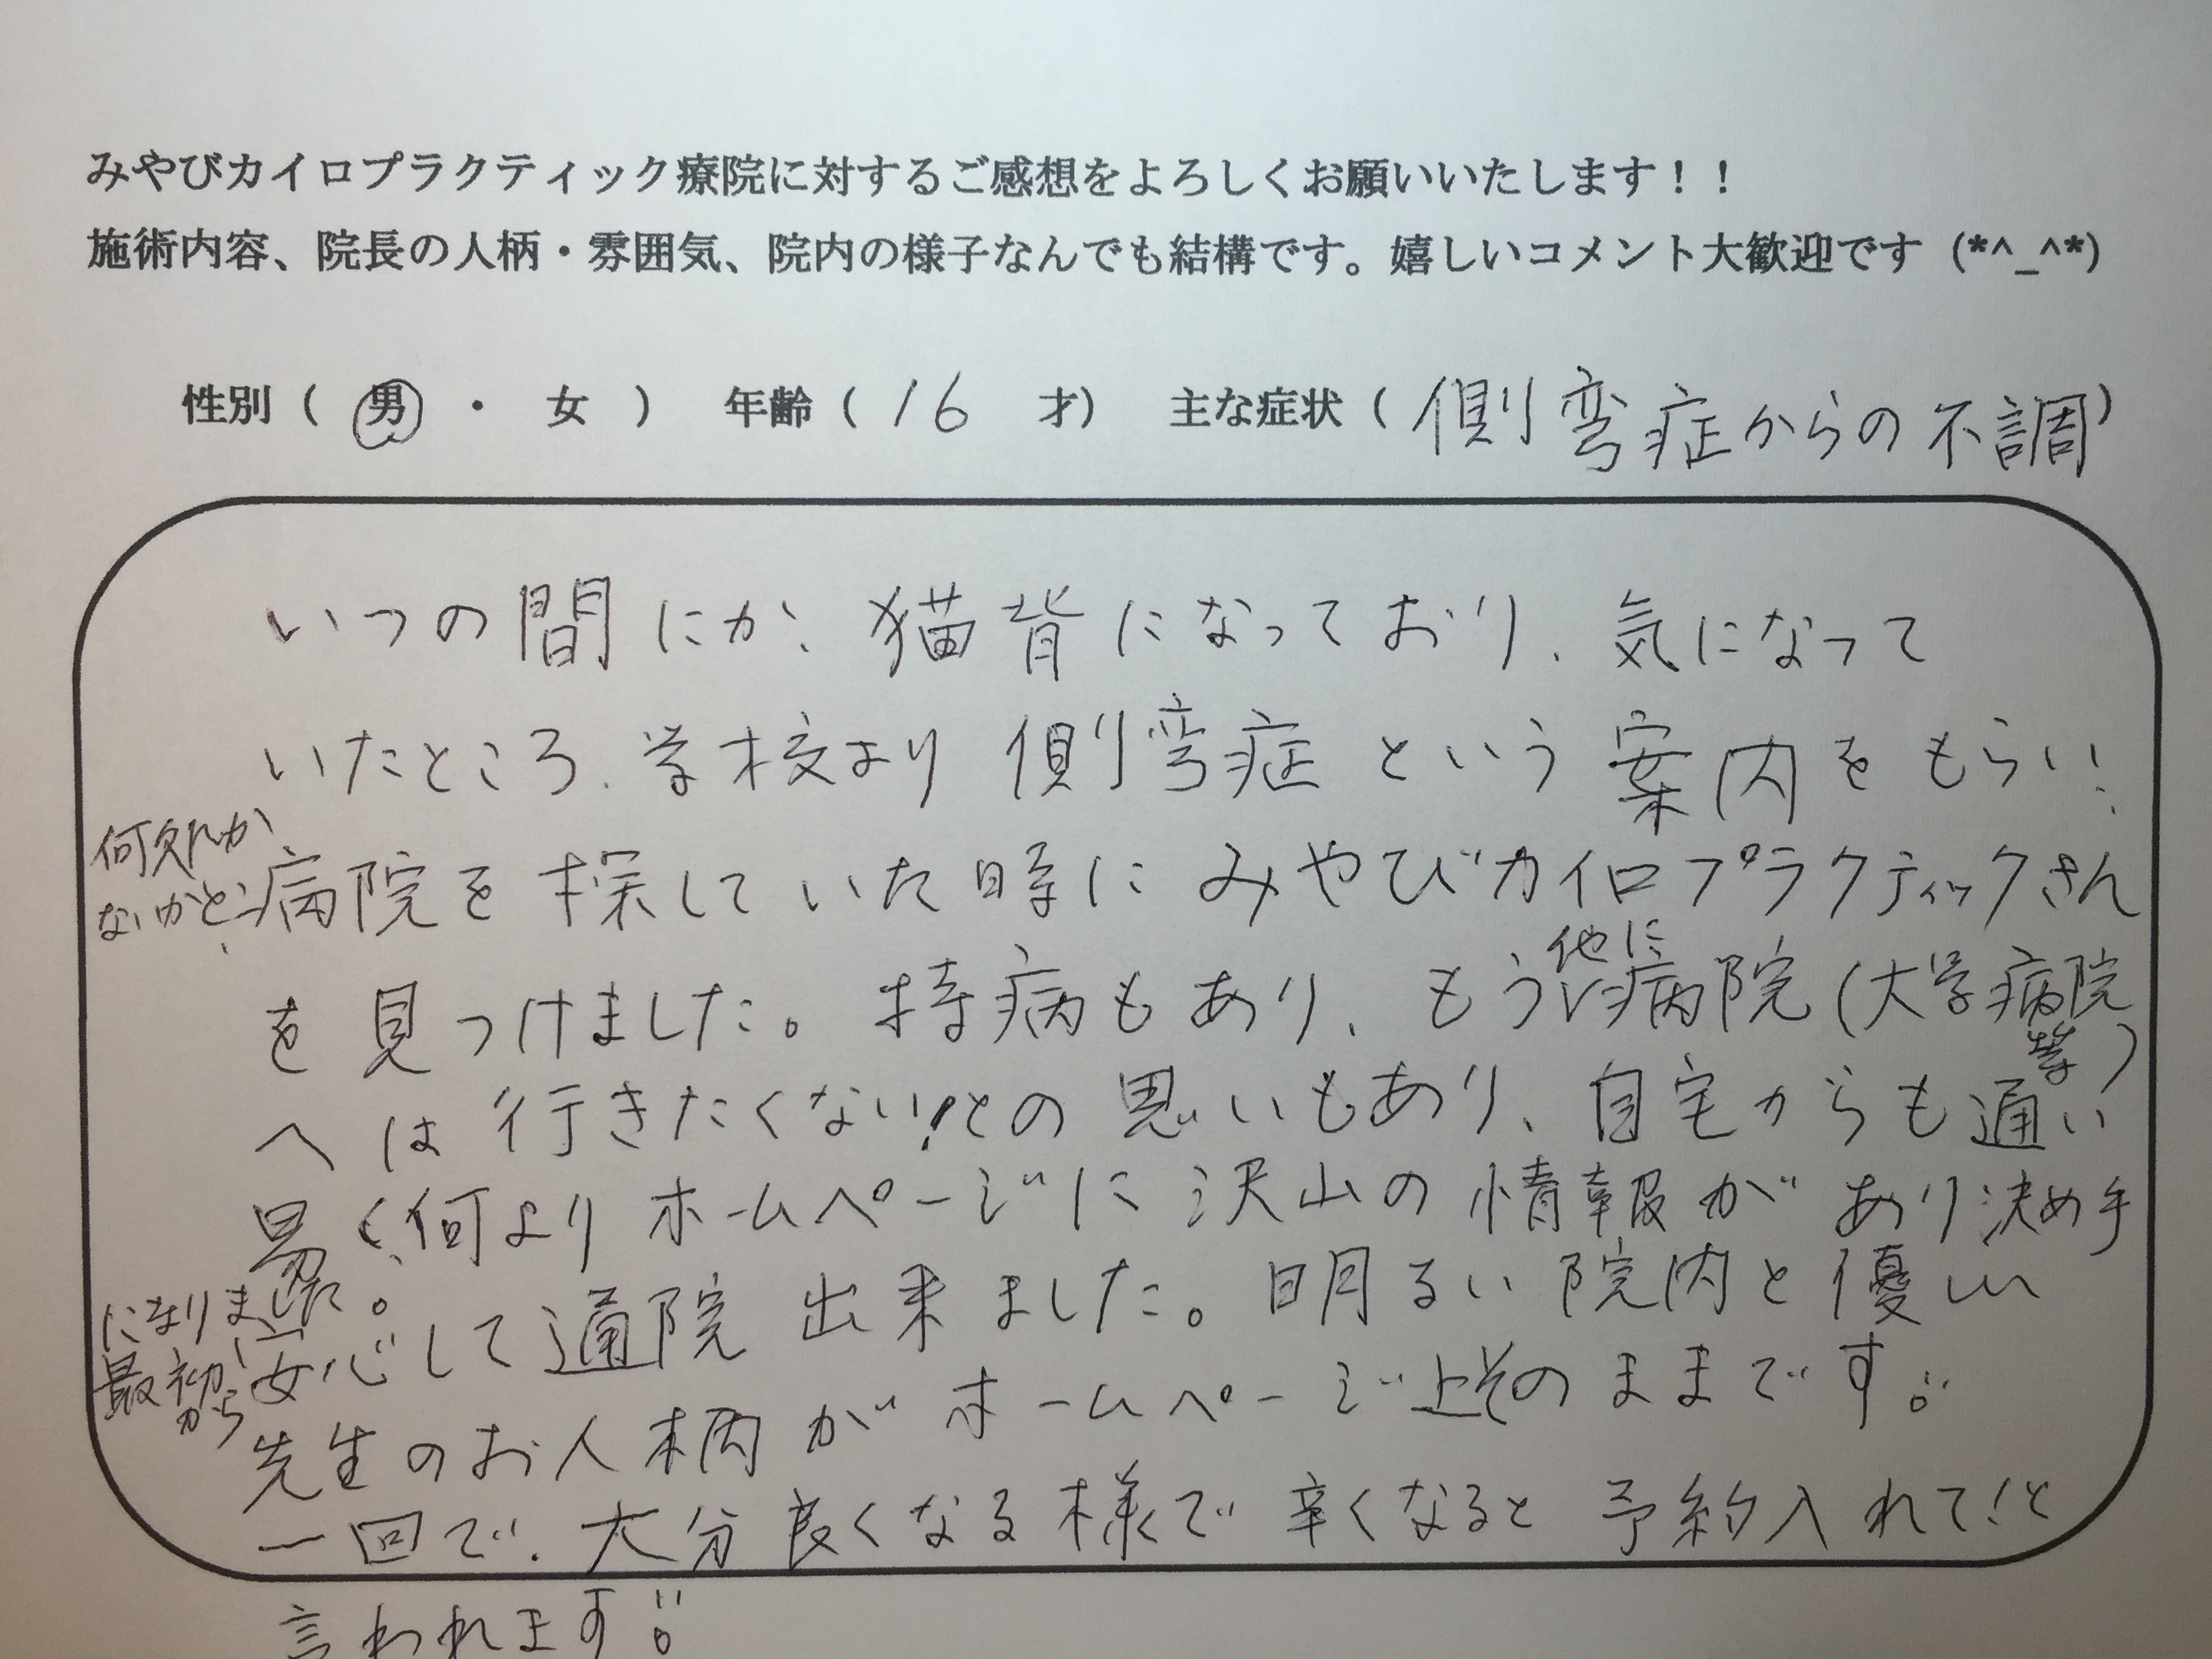 みやびカイロプラクティック療院に対するご感想をよろしくお願いいたします！！
施術内容、院長の人柄・雰囲気、院内の様子なんでも結構です。嬉しいコメント大歓迎です (*^_^*)
性別（ 男 ・ 女 ） 年齢（ 16 才） 主な症状（ 側弯症からの不調）
いつの間にか、猫背になっており、気になって
いたところ、学校より側弯症という案内をもらい、
何処か
ないかと、病院を探していた時にみやびカイロプラクティックさん
を見つけました。持病もあり、もう他に病院（大学病院
等）
へは行きたくない！との思いもあり、自宅からも通い
易く、何よりホームページに沢山の情報があり決め手
になりました。
最初から安心して通院出来ました。明るい院内と優しい
先生のお人柄がホームページ上そのままです。
一回で、大分良くなる様で辛くなると予約入れて！と
言われます。